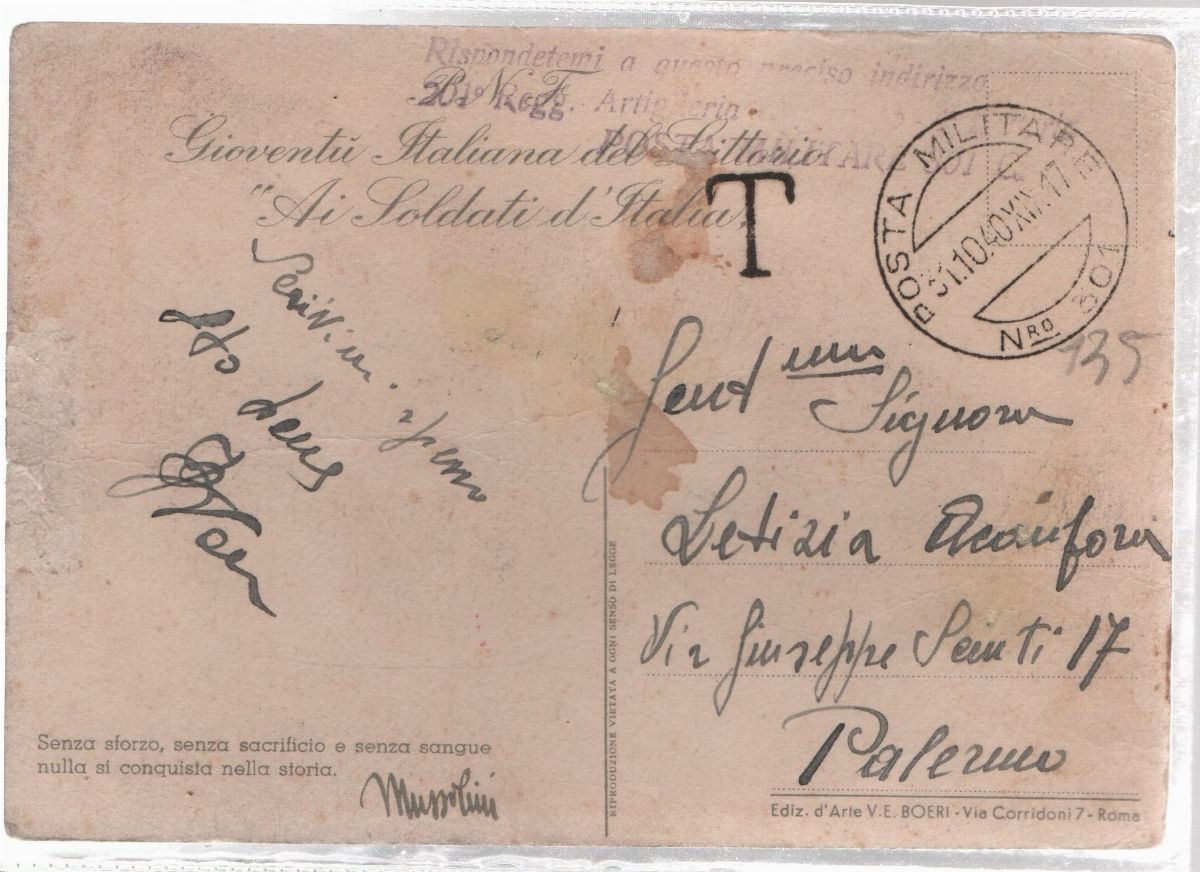 Rispondetemi a questo preciso indirizzo
P. N. F.
201° Regg. Artiglieria
POSTA MILITARE 301 C.
Gioventù Italiana del Littorio
"Ai Soldati d'Italia"
T
POSTA MILITARE
31.10.40 XIX. 17
NRO 301
135
Scrivimi. spero
sto bene
Gent mma
Signora
Letizia Acanfora
Via Giuseppe Scuti 17
Palermo
Senza sforzo, senza sacrificio e senza sangue
nulla si conquista nella storia.
Mussolini
RIPRODUZIONE VIETATA A OGNI SENSO DI LEGGE
Ediz. d'Arte V. E. BOERI - Via Corridoni 7 - Roma